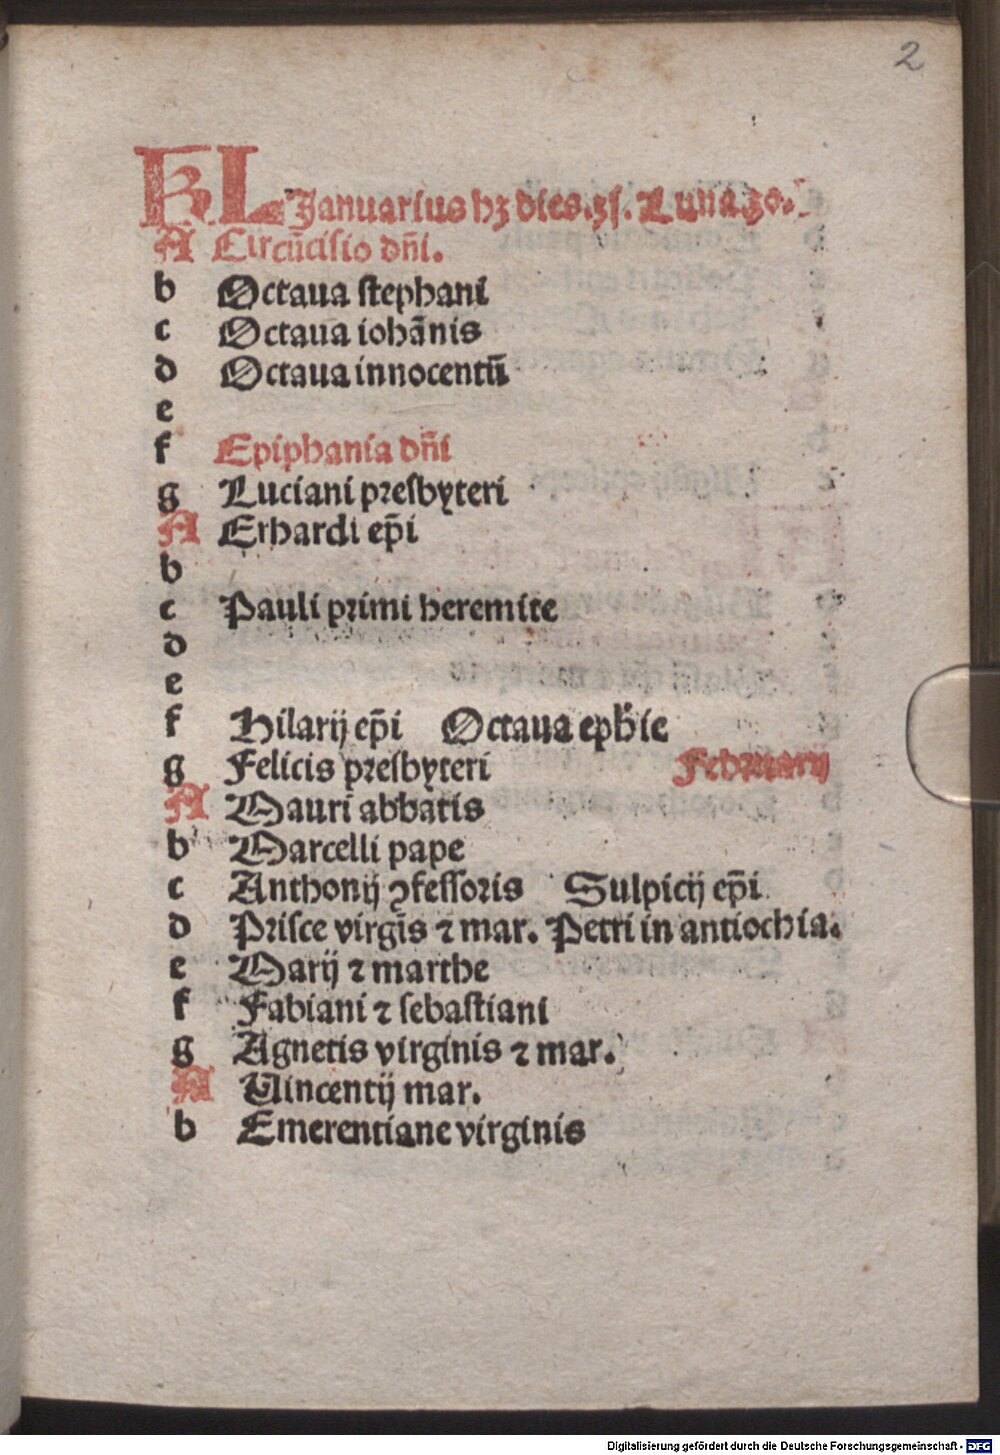 2
KL Januarius hꝫ dies.31. Luna.30.
A Circūcisio dn̄i.
b Octaua stephani
c Octaua iohānis
d Octaua innocentū
e
f Epiphania dn̄i
g Luciani presbyteri
A Erhardi ep̄i
b
c Pauli primi heremite
d
e
f Hilarij ep̄i Octaua eph̄ie
g Felicis presbyteri Februarij
A Mauri abbatis
b Marcelli pape
c Anthonij ꝯfessoris Sulpicij ep̄i
d Prisce virgīs ⁊ mar. Petri in antiochia.
e Marij ⁊ marthe
f Fabiani ⁊ sebastiani
g Agnetis virginis ⁊ mar.
A Vincentij mar.
b Emerentiane virginis
Digitalisierung gefördert durch die Deutsche Forschungsgemeinschaft - DFG